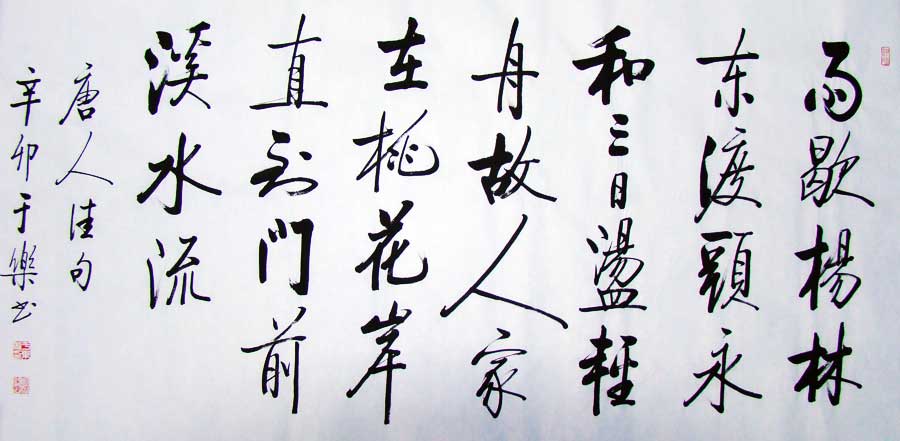 雨歇楊林
东渡頭永
和三日盪輕
舟故人家
在桃花岸
直到門前
溪水流
唐人佳句
辛卯于樂书